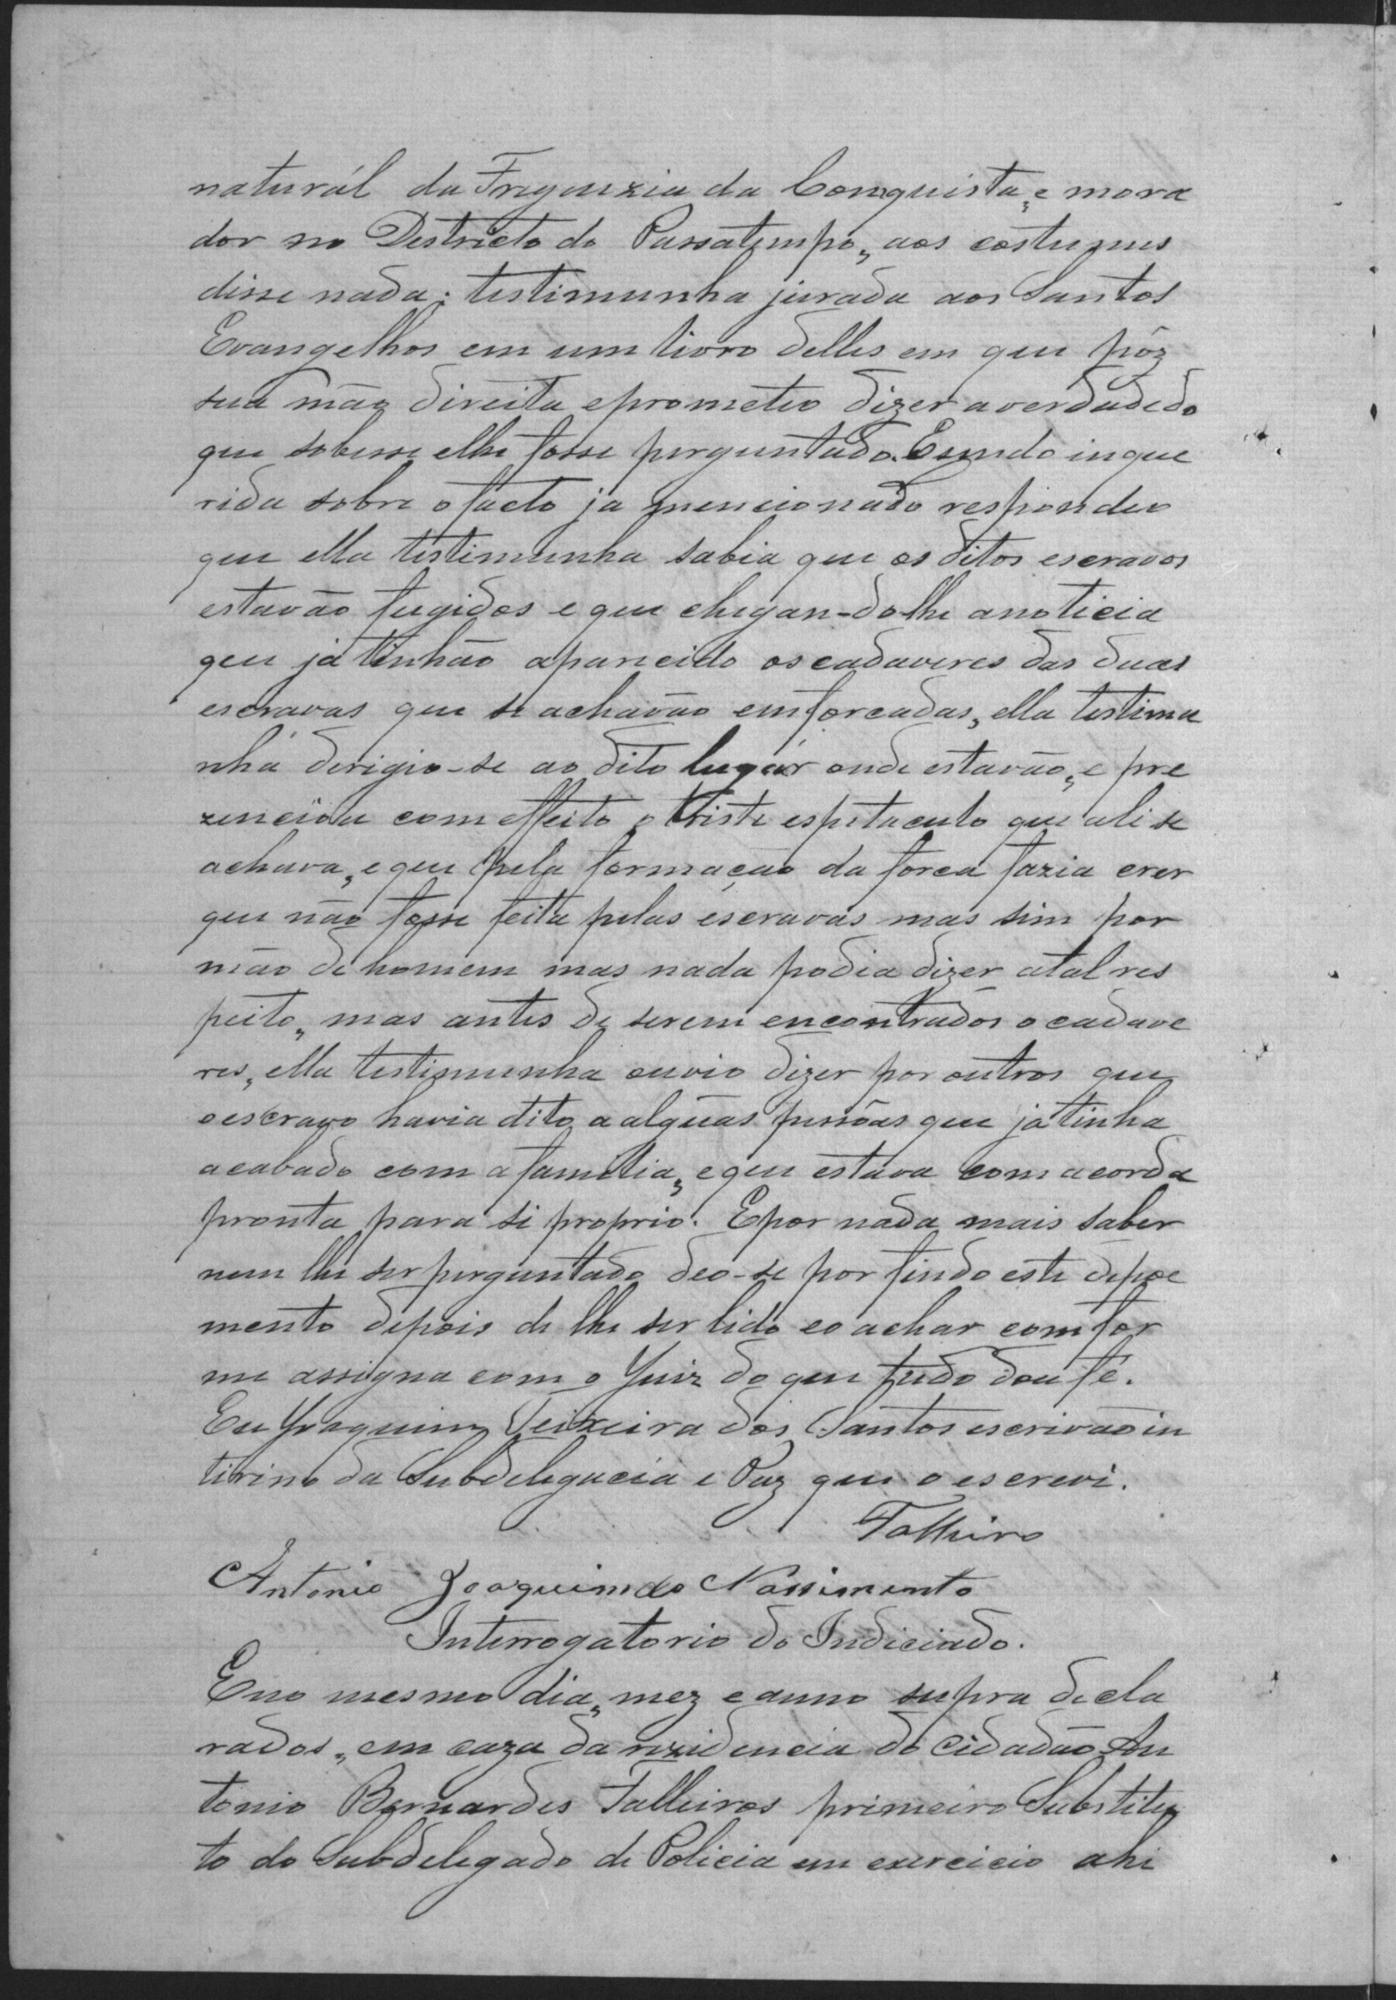 naturál da Freguezia da Comquista, e mora
dor no Destricto do Passatempo, aos costumes
disse nada; testimunha jurada aos Santos
Evangelhos em um livro delles em que pôz
sua mão direita eprometeo dizer averdadedo
que sobesse elhe fosse perguntado. Esendo inque
rida sobre ofacto ja mencionado respondeo
que ella testimunha sabia que os ditos escravos
estavão fugidos e que chegan-dolhe anoticia
que já tinhão aparecido oscadaveres das duas
escravas que se achavão emforcadas, ella testimu
nha derigio-se ao dito lugár onde estavão, e pre
zenciou com effeito o triste espetaculo que ali se
achava, eque pela formação da forca fazia crer
que não fosse feita pelas escravas mas sim por
mão de homem mas nada podia dizer atal res
peito, mas antes de serem encontrados o cadave
res, ella testimunha ouvio dizer por outros que
oescravo havia dito aalgũas pessôas que já tinha
acabado com a familia, eque estava com acorda
pronta para si proprio. Epor nada mais saber
nem lhe ser perguntado deo-se por findo este depoe
mento depois de lhe ser lido eo achar comfor
me assigna com o Juiz do que tudo dou fé.
Eu Joaquim Teixeira dos Santos escrivão in
tirino da Subdelegacia e Paz que o escrevi.
Falleiro
Antonio Joaquim do Nassimento
Interrogatorio do Indiciado.
Eno mesmo dia, mez e anno supra decla
rados, em caza da rezidencia do Cidadão An
tonio Bernardes Falleiros primeiro Substitu
to do Subdelegado de Policia em exercicio ahi